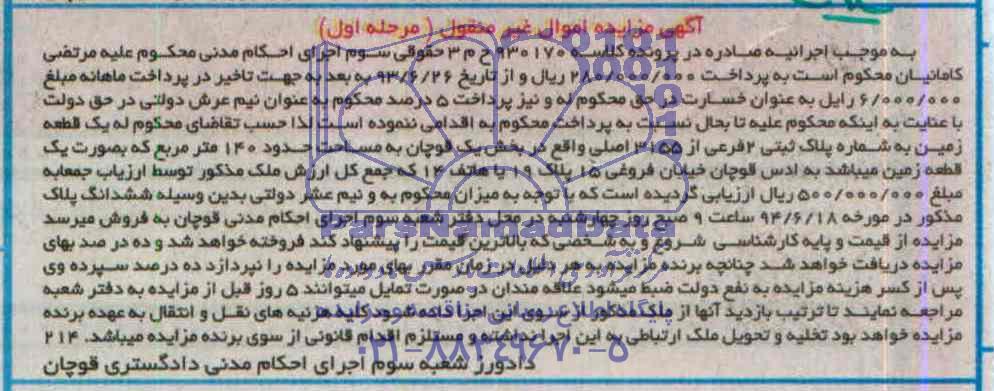 آگهی مزایده اموال غیر منقول ( مرحله اول)
به موجب اجرائیه صادره در پرونده کلاسه ۹۳۰۱۷۰ ح م ۳ حقوقی سوم اجرای احکام مدنی محکوم علیه مرتضی
کامانیان محکوم است به پرداخت ۲۸۰/۰۰۰/۰۰۰ ریال و از تاریخ ۹۳/۶/۲۶ به بعد به جهت تاخیر در پرداخت ماهانه مبلغ
۶/۰۰۰/۰۰۰ رایل به عنوان خسارت در حق محکوم له و نیز پرداخت ۵ درصد محکوم به عنوان نیم عرش دولتی در حق دولت
با عنایت به اینکه محکوم علیه تا بحال نسبت به پرداخت محکوم به اقدامی ننموده است لذا حسب تقاضای محکوم له یک قطعه
زمین به شماره پلاک ثبتی ۲فرعی از ۳۱۵۵ اصلی واقع در بخش یک قوچان به مساحت حدود ۱۴۰ متر مربع که بصورت یک
قطعه زمین میباشد به ادس قوچان خیابان فروغی ۱۵ پلاک ۱۹ یا هاتف ۱۴ که جمع کل ارزش ملک مذکور توسط ارزیاب جمعابه
مبلغ ۵۰۰/۰۰۰/۰۰۰ ریال ارزیابی گردیده است که با توجه به میزان محکوم به و نیم عشر دولتی بدین وسیله ششدانگ پلاک
مذکور در مورخه ۹۴/۶/۱۸ ساعت ۹ صبح روز چهارشنبه در محل دفتر شعبه سوم اجرای احکام مدنی قوچان به فروش میرسد
مزایده از قیمت و پایه کارشناسی شروع و به شخصی که بالاترین قیمت را پیشنهاد کند فروخته خواهد شد و ده در صد بهای
مزایده دریافت خواهد شد چنانچه برنده مزایده به هر دلیل در زمان مقرر بهای مورد مزایده را نپردازد ده درصد سپرده وی
پس از کسر هزینه مزایده به نفع دولت ضبط میشود علاقه مندان در صورت تمایل میتوانند ۵ روز قبل از مزایده به دفتر شعبه
مراجعه نمایند تا ترتیب بازدید آنها از ملک مذکور از سوی این اجرا داده شود کلیه هزنیه های نقل و انتقال به عهده برنده
مزایده خواهد بود تخلیه و تحویل ملک ارتباطی به این اجرا نداشته و مستلزم اقدام قانونی از سوی برنده مزایده میباشد. ۲۱۴
دادورز شعبه سوم اجرای احکام مدنی دادگستری قوچان
ParsNamadData
۰۲۱-۸۸۳۴۹۶۷۰-۵